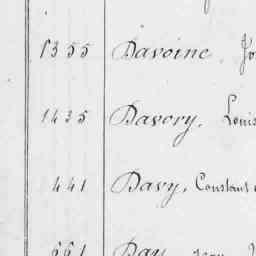 1355 Davoine, Jo
1435 Davory, Louis
441 Davy, Constant
661 Day,